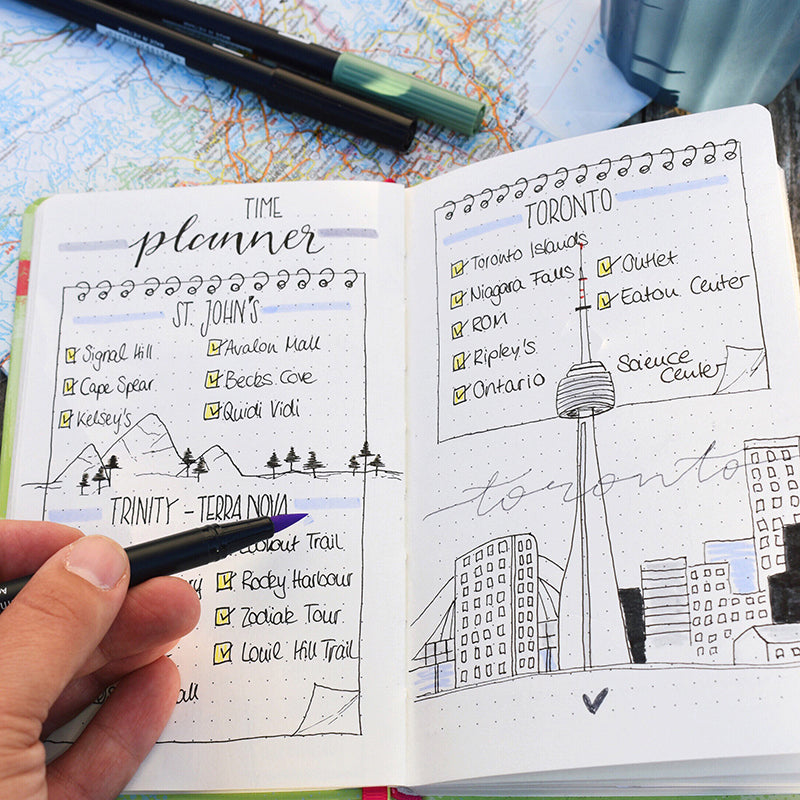 TIME
planner
ST. JOHN'S
Signal Hill
Cape Spear
Kelsey's
Avalon Mall
Becks Cove
Quidi Vidi
TRINITY - TERRA NOVA
Lookout Trail
Rocky Harbour
Zodiak Tour
Louil Hill Trail
TORONTO
Toronto Islands
Niagara Falls
ROM
Ripley's
Ontario Science Center
Outlet
Eaton Center
toronto